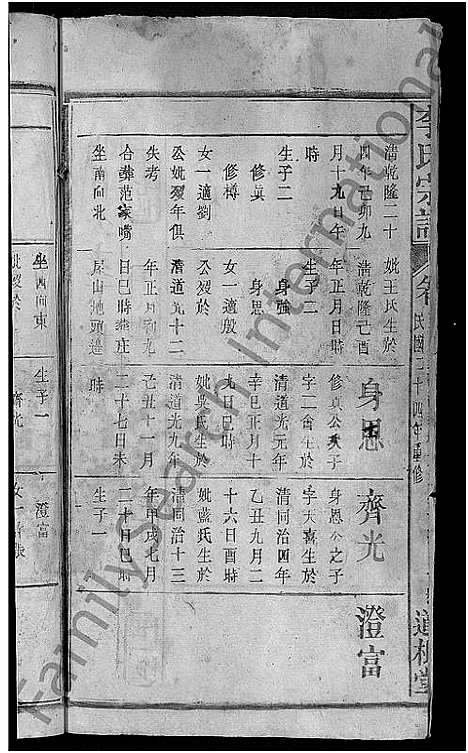 李氏宗譜
民國二十四年重修
道根堂
清乾隆二十
四年己卯九
月十九日午
時
生子二
修真
修樽
女一適劉
公妣歿年俱
失考
合葬范家嘴
坐南向北
妣王氏生於
清乾隆己酉
年正月
生子二
身強
身思
女一適殷
公歿於
清道光十二
年正月初九
日巳時葬庄
屋山地頭邊
身思
修真公次子
字二
清道光元年
辛巳正月十
九日巳時
妣吳氏生於
清道光九年
己丑十一月
二十七日未
時
齊光
身思公之子
字天喜生於
清同治四年
乙丑九月二
十六日酉時
妣藍氏生於
清同治十三
年甲戌七月
二十日巳時
生子一
澄富
坐西向東
妣歿於
生子一
齊光
澄富
女一
FamilySearch International